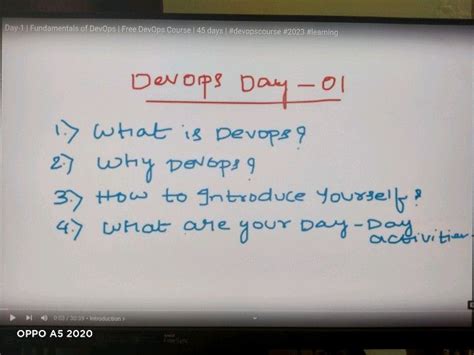 Day-1 | Fundamentals of DevOps | Free DevOps Course | 45 days | #devopscourse #2023 #learning
DevOps Day - 01
1.) What is Devops?
2.) Why Devops?
3.) How to Introduce Yourself?
4.) What are your Day-Day
activities.
0:03 / 30:39 • Introduction >
OPPO A5 2020